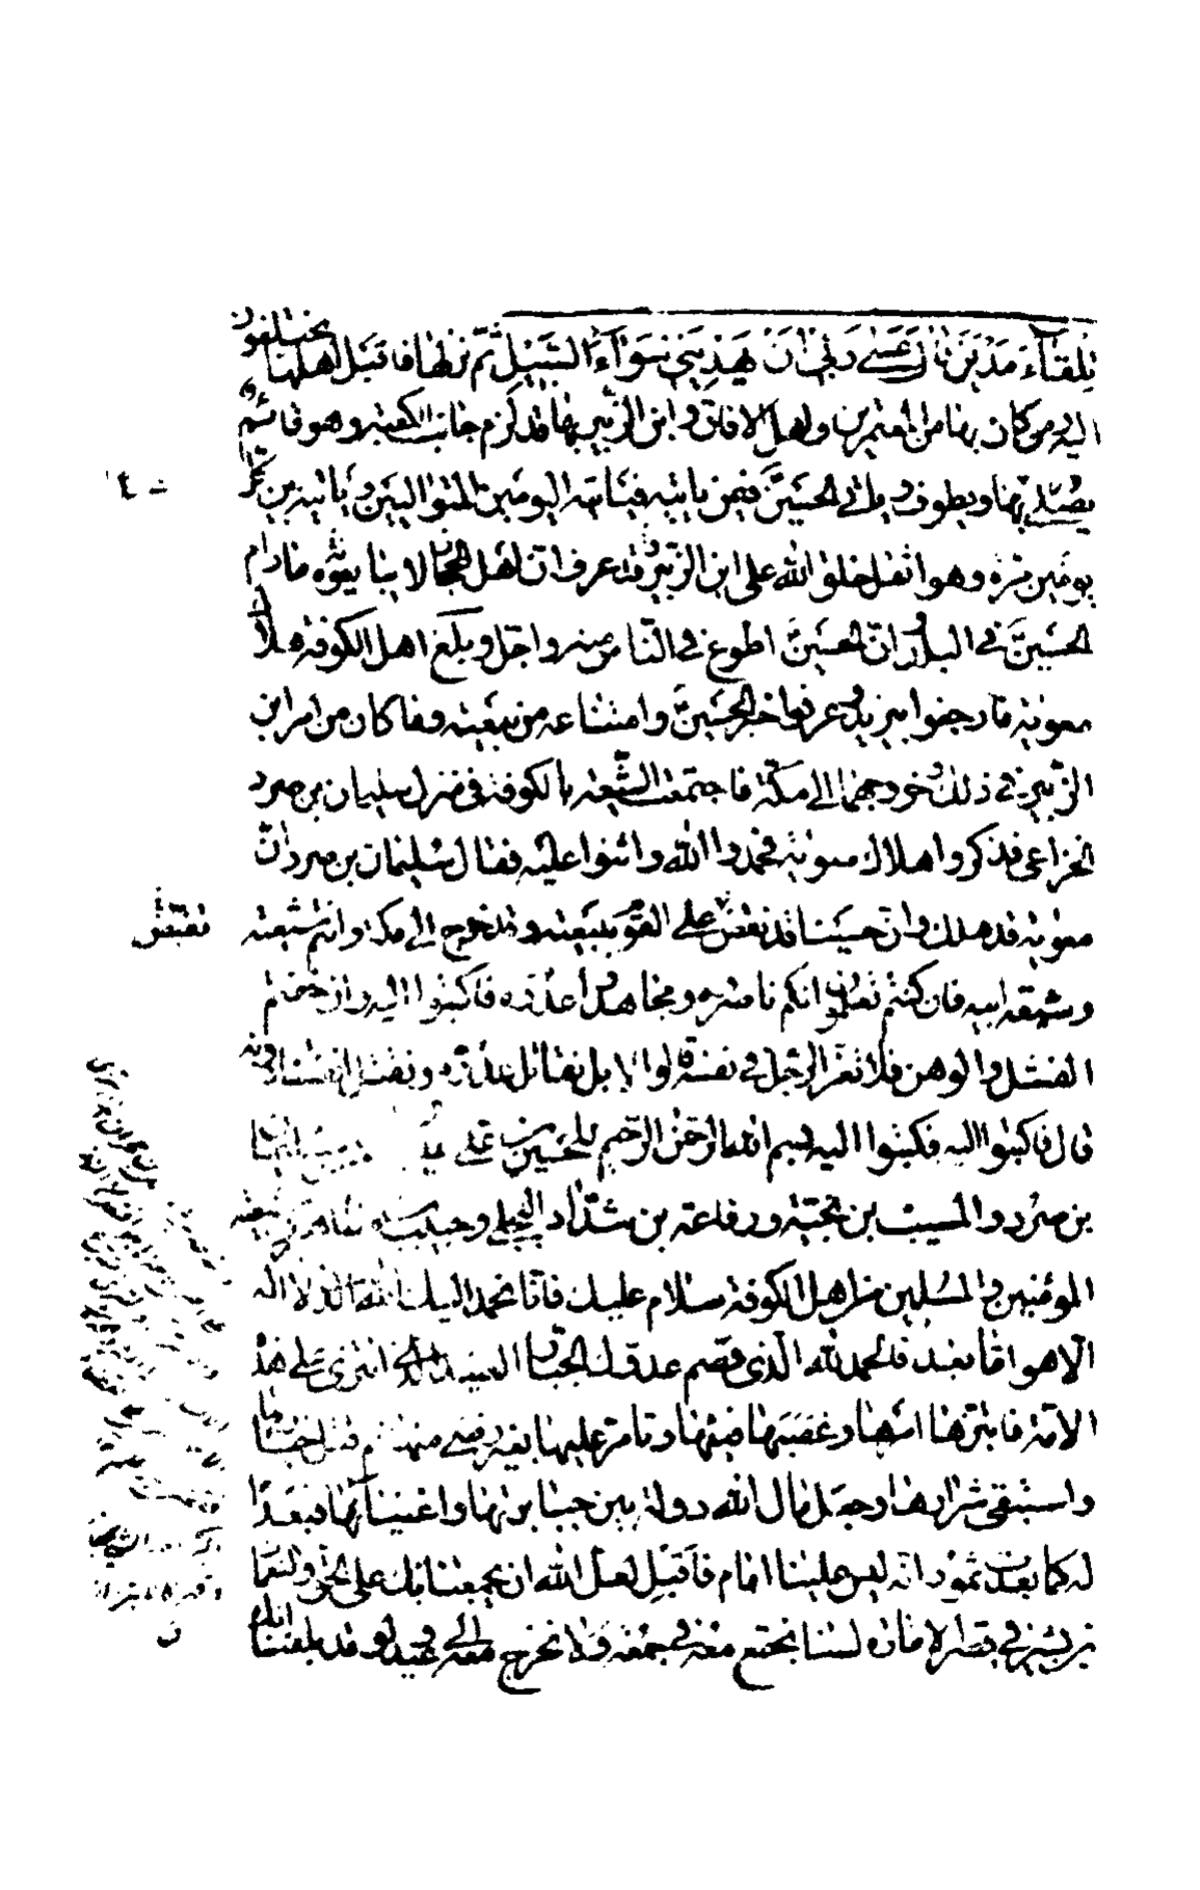 تلقاء مدين قال عسى ربي ان يهديني سوآء السبيل ثم نزلها فاقبل اهلها يختلفون
اليه ومن كان بها من المعتمرين واهل الافاق وابن الزبير بها قد لزم جانب الكعبة وهو قائم
يصلي بها ويطوف وياتي الحسين فيمن ياتيه فياتيه اليومين المتواليين وياتيه بين كل
يومين مرة وهو اثقل خلق الله على ابن الزبير قد عرف ان اهل الحجاز لا يبايعونه ما دام
الحسين في البلد وان الحسين اطوع في الناس منه واجل وبلغ اهل الكوفة هلاك
معوية فارجفوا بيزيد وعرفوا خبر الحسين وامتناعه من بيعته وما كان من امر ابن
الزبير في ذلك وخروجهما الى مكة فاجتمعت الشيعة بالكوفة في منزل سليمان بن صرد
الخزاعي فذكروا هلاك معوية فحمدوا الله واثنوا عليه فقال سليمان بن صرد ان
معوية قد هلك وان حسينا قد نقض على القوم ببيعته وقد خرج الى مكة وانتم شيعته
وشيعة ابيه فان كنتم تعلمون انكم ناصروه ومجاهدوا عدوه فاكتبوا اليه وان خفتم
الفشل والوهن فلا تغروا الرجل في نفسه قالوا لا بل نقاتل عدوه ونقتل انفسنا دونه
قال فاكتبوا اليه فكتبوا اليه بسم الله الرحمن الرحيم للحسين بن علي من سليمان
بن صرد والمسيب بن نجبة ورفاعة بن شداد البجلي وحبيب بن مظاهر وشيعته
المؤمنين والمسلمين من اهل الكوفة سلام عليك فانا نحمد اليك الله الذي لا اله
الا هو اما بعد فالحمد لله الذي قصم عدوك الجبار العنيد الذي انتزى على هذه
الامة فابتزها امرها وغصبها فيئها وتامر عليها بغير رضى منها ثم قتل خيارها
واستبقى شرارها وجعل مال الله دولة بين جبابرتها واغنيائها فبعدا
له كما بعدت ثمود انه ليس علينا امام فاقبل لعل الله ان يجمعنا بك على الحق والنعمان
بن بشير في قصر الامارة لسنا نجتمع معه في جمعة ولا نخرج معه الى عيد ولو قد بلغنا انك